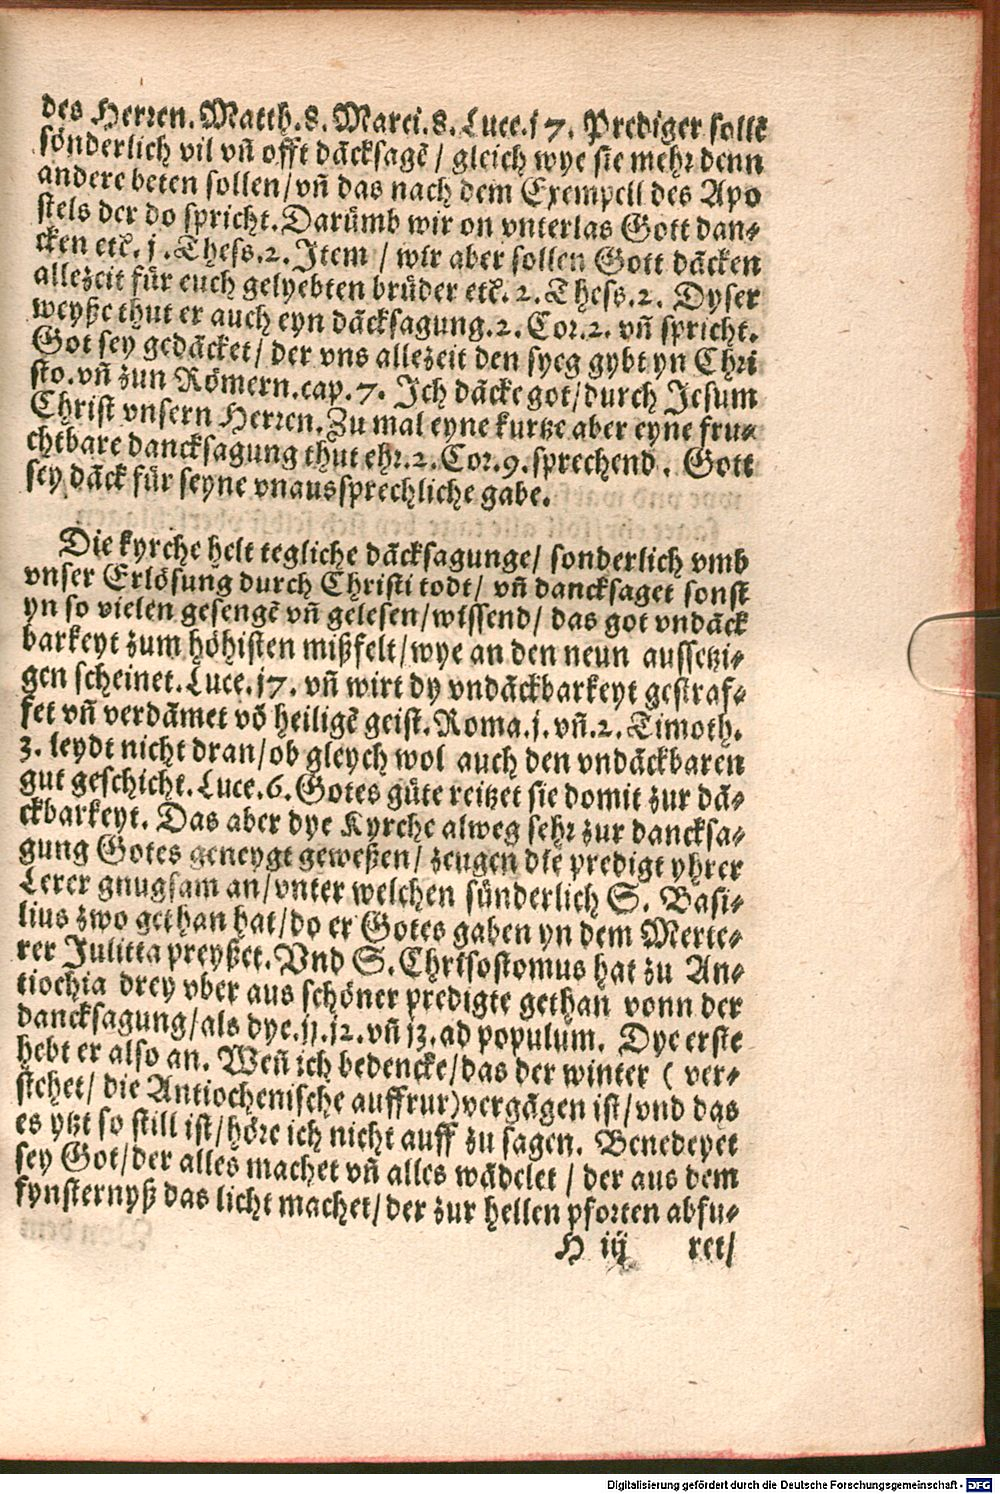 des Herren. Matth. 8. Marci. 8. Luce. j 7. Prediger sollē
sönderlich vil vñ offt dācksagē / gleich wye sie mehr denn
andere beten sollen / vñ das nach dem Exempell des Apo
stels der do spricht. Darümb wir on vnterlas Gott dan⸗
cken etc̄. j. Thess. 2. Item / wir aber sollen Gott dācken
allezeit für euch gelyebten brüder etc̄. 2. Thess. 2. Dyser
weyße thut er auch eyn dācksagung. 2. Cor. 2. vñ spricht.
Got sey gedācket / der vns allezeit den syeg gybt yn Chri
sto. vñ zun Römern. cap. 7. Ich dācke got / durch Jesum
Christ vnsern Herren. Zu mal eyne kurtze aber eyne fru⸗
chtbare dancksagung thut ehr. 2. Cor. 9. sprechend. Gott
sey dāck für seyne vnaussprechliche gabe.
Die kyrche helt tegliche dācksagunge / sonderlich vmb
vnser Erlösung durch Christi todt / vñ dancksaget sonst
yn so vielen gesengē vñ gelesen / wissend / das got vndāck
barkeyt zum höhisten mißfelt / wye an den neun aussetzi⸗
gen scheinet. Luce. j7. vñ wirt dy vndāckbarkeyt gestraf⸗
fet vñ verdāmet vō heiligē geist. Roma. j. vñ. 2. Timoth.
3. leydt nicht dran / ob gleych wol auch den vndāckbaren
gut geschicht. Luce. 6. Gotes güte reitzet sie domit zur dā⸗
ckbarkeyt. Das aber dye Kyrche alweg sehr zur dancksa⸗
gung Gotes geneygt geweßen / zeugen die predigt yhrer
Lerer gnugsam an / vnter welchen sünderlich S. Basi⸗
lius zwo gethan hat / do er Gotes gaben yn dem Merte⸗
rer Julitta preyßet. Vnd S. Chrisostomus hat zu An⸗
tiochia drey vber aus schöner predigte gethan vonn der
dancksagung / als dye. jj. j2. vñ j3. ad populum. Dye erste
hebt er also an. Weñ ich bedencke / das der winter ( ver⸗
stehet / die Antiochenische auffrur) vergāgen ist / vnd das
es ytzt so still ist / höre ich nicht auff zu sagen. Benedeyet
sey Got / der alles machet vñ alles wādelet / der aus dem
fynsternyß das licht machet / der zur hellen pforten abfu⸗
H iij ret /
Digitalisierung gefördert durch die Deutsche Forschungsgemeinschaft - DFG